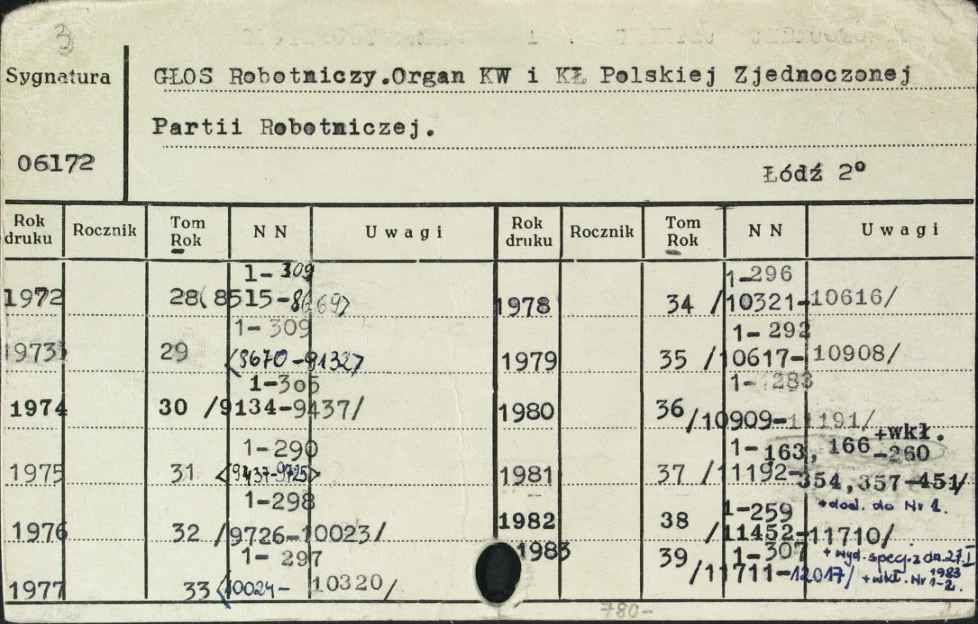 3
Sygnatura
GŁOS Robotniczy.Organ KW i KŁ Polskiej Zjednoczonej
Partii Robotniczej.
06172
Łódź 2°
Rok druku Rocznik Tom Rok N N Uwagi Rok druku Rocznik Tom Rok N N Uwagi
1-309
1972 28 (8515-8669)
1-309
1973 29 <8670-9132>
1-305
1974 30 /9134-9437/
1-290
1975 31 <9437-9725>
1-298
1976 32 /9726-10023/
1-297
1977 33 <10024-10320/
1-296
1978 34 /10321-10616/
1-292
1979 35 /10617-10908/
1-283
1980 36 /10909-11191/
+wkł.
1-163, 166-260
1981 37 /11192-
354,357-451/
+dod. do Nr 1.
1-259
1982 38 /11452-11710/
1-307 +wyd. specj. z dn. 27.I 1983
1983 39 /11711-12017/ +wkł. Nr 1-2.
780-